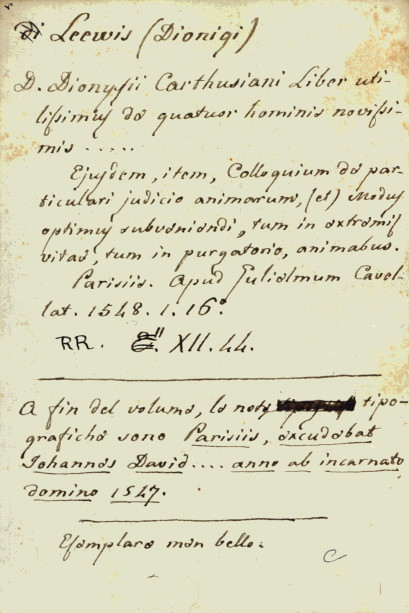 di Leewis (Dionigi)
D. Dionysii Carthusiani Liber uti-
lissimus de quatuor hominis novissi-
mis .....
Ejusdem, item, Colloquium de par-
ticulari judicio animarum, (et) Modus
optimus subveniendi, tum in extremis
vitae, tum in purgatorio, animabus.
Parisiis. Apud Gulielmum Cavel-
lat. 1548. 1. 16°.
RR. XII. 44.
A fin del volume, le note tipo-
grafiche sono Parisiis, excudebat
Iohannes David .... anno ab incarnato
domino 1547.
Esemplare non bello.
C